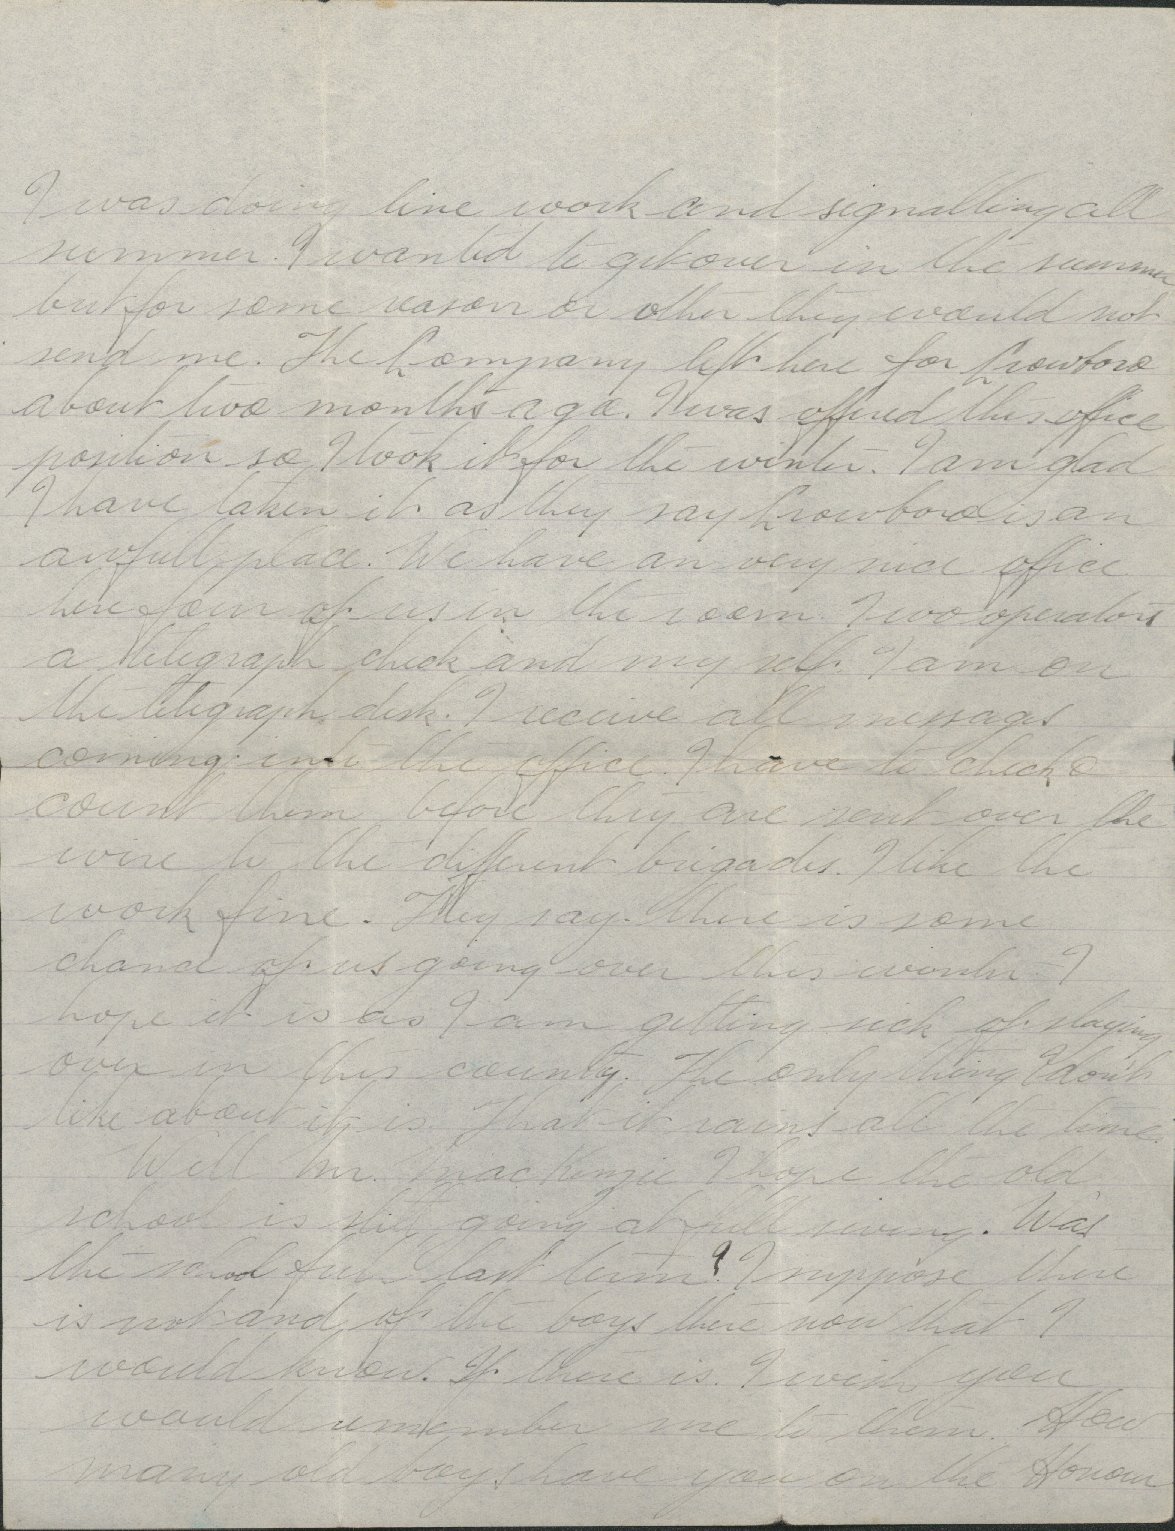 I was doing line work and signalling all
summer. I wanted to get over in the summer
but for some reason or other they would not
send me. The Company left here for Crowboro
about two months ago. I was offered this office
position so I took it for the winter. I am glad
I have taken it as they say Crowboro is an
awfull place. We have an very nice office
here four of us in the room. Two operators
a telegraph check and my self. I am on
the telegraph desk. I receive all messages
coming into the office. I have to check &
count them before they are sent over the
wire to the different brigades. I like the
work fine. They say there is some
chance of us going over this winter I
hope it is as I am getting sick of staying
over in this country. The only thing I don't
like about it is. That it rains all the time.
Will Mr. MacKenzie I hope the old
school is still going at full swing. Was
the school full last term? I suppose there
is not and of the boys there now that I
would know. If there is. I wish you
would remember me to them. How
many old boys have you on the Honour